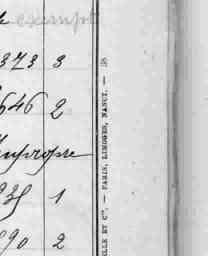 exempt
373 3
646 2
impropre
935 1
690 2
ELLE ET Cie. — PARIS, LIMOGES, NANCY. — 58